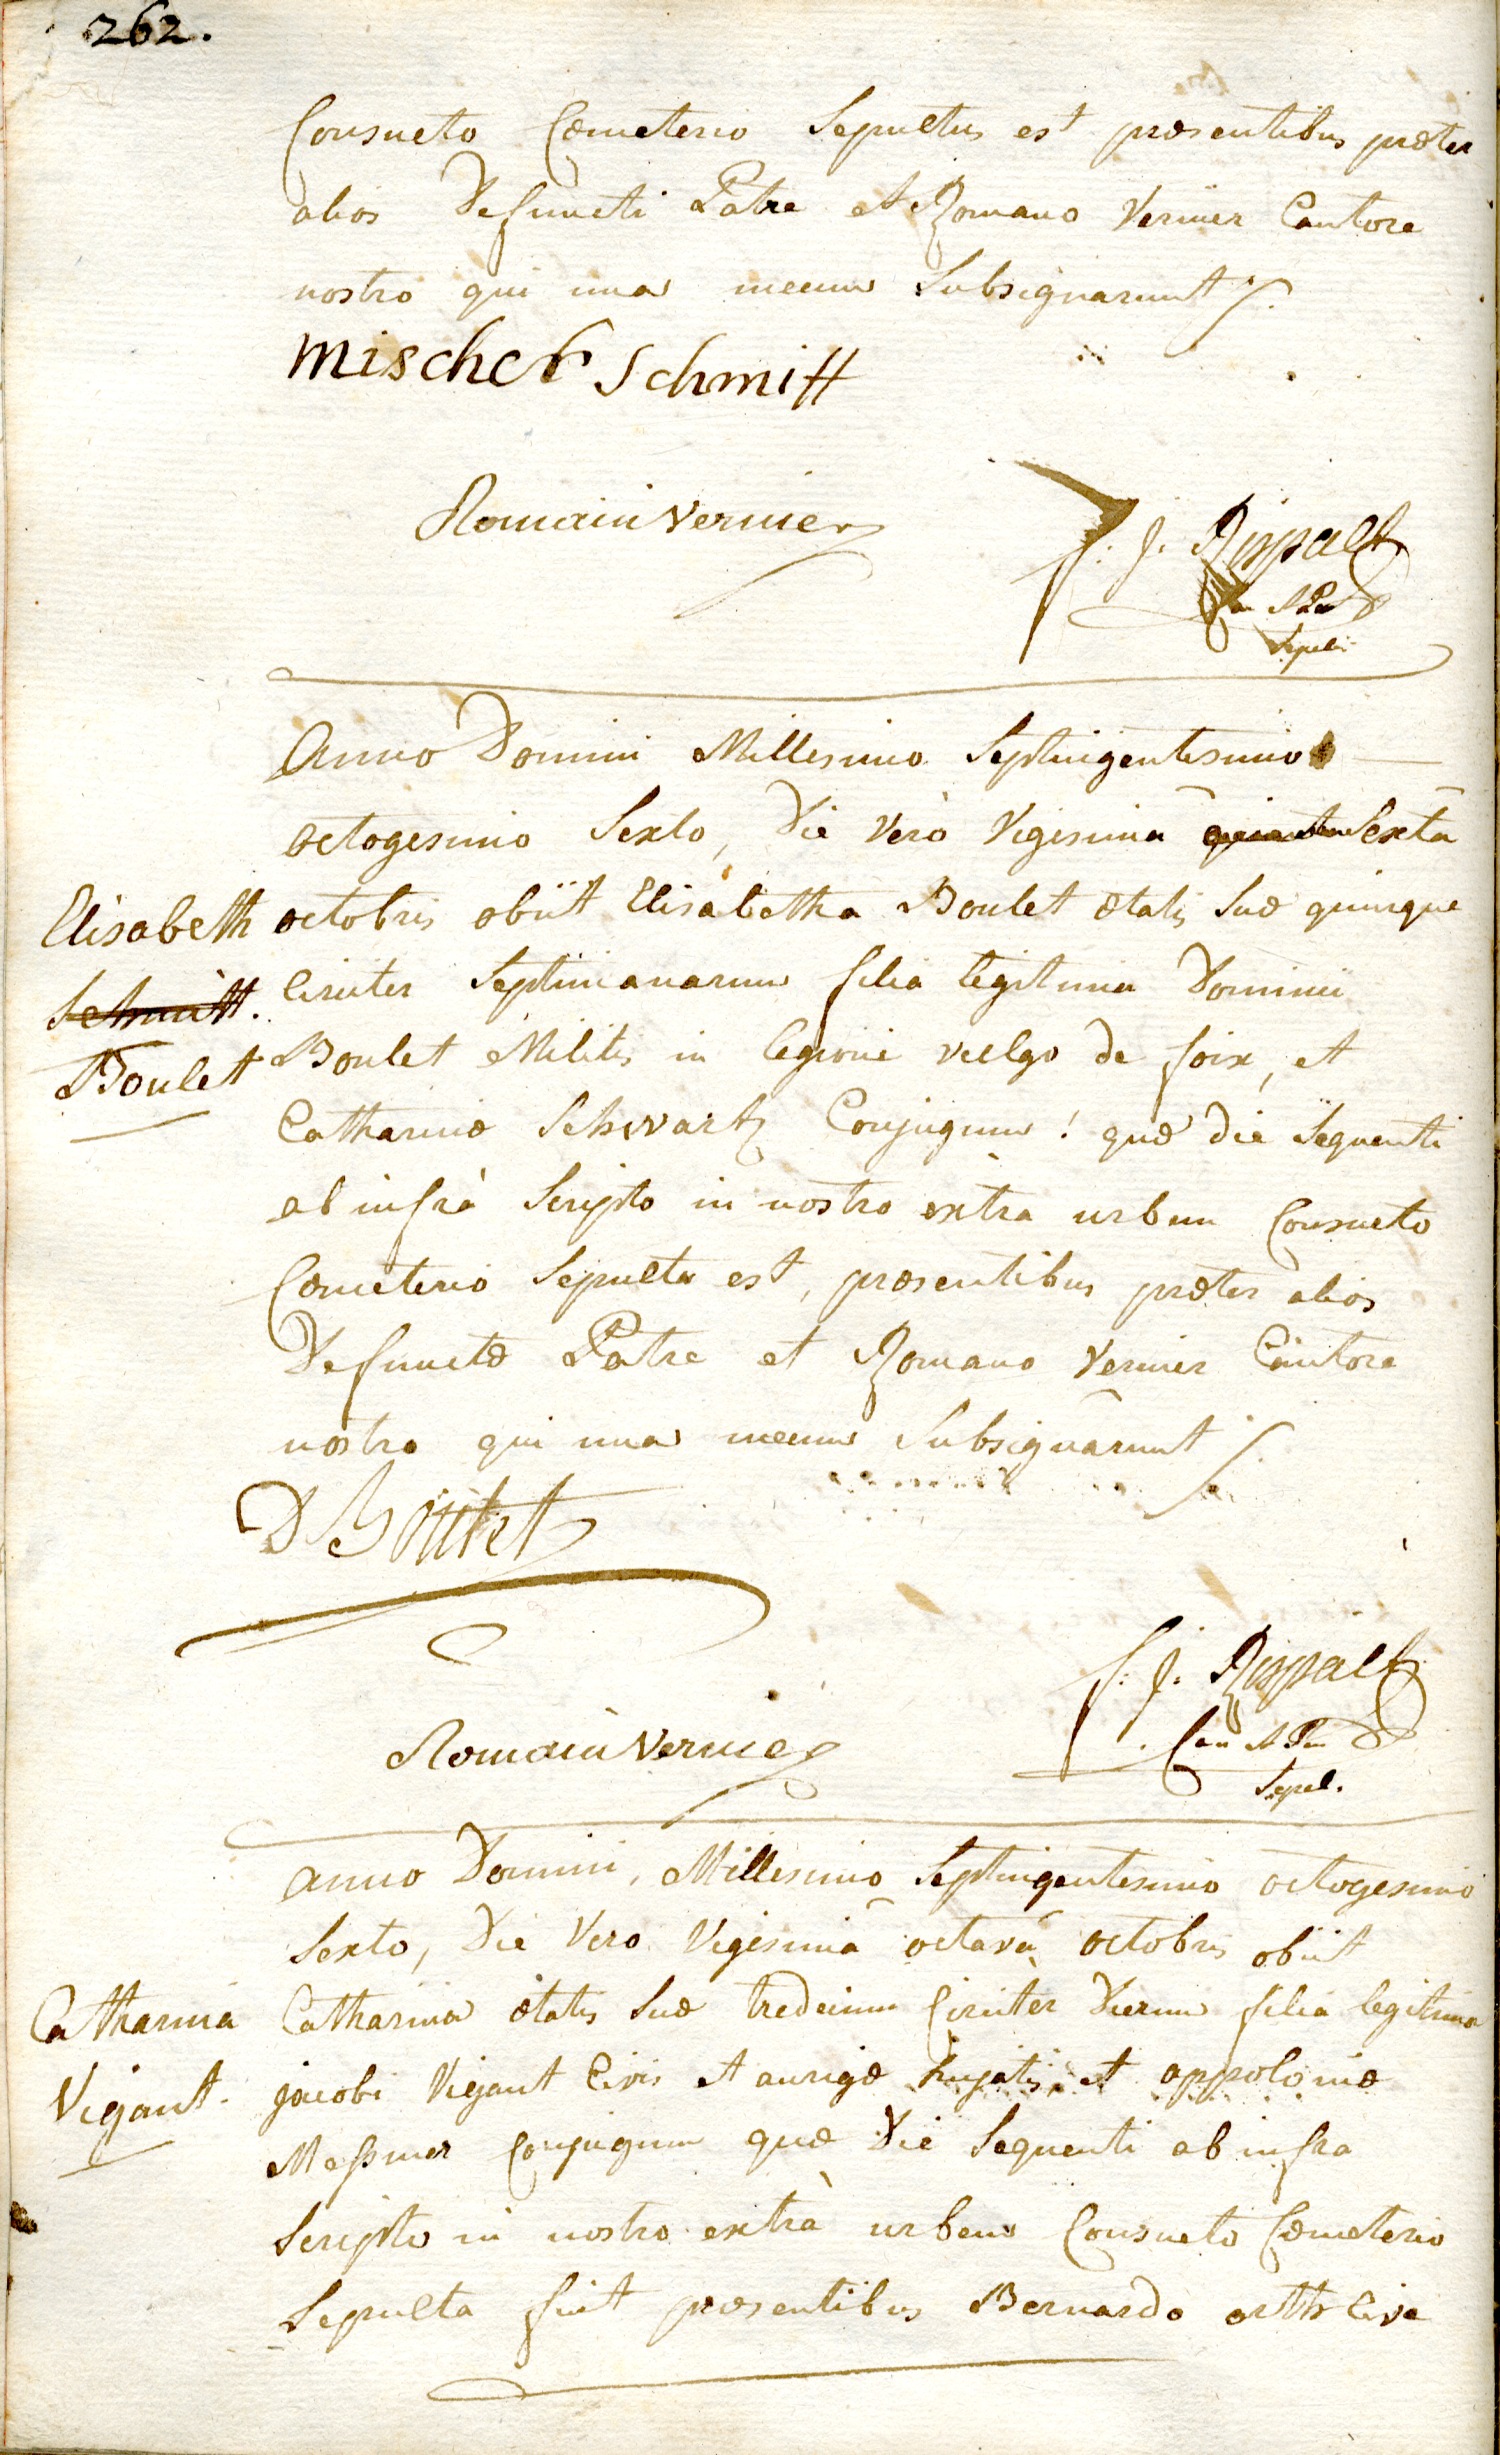 262.
Consueto Cœmeterio Sepultus est præsentibus præter
alios Defuncti Patre et Romano Vernier Cantore
nostro qui una mecum Subsignarunt
mischel Schmitt
Romain Vernier
f. j. Rispalt
Can
Sepel.
Anno Domini Millesimo Septingentesimo
octogesimo Sexto, Die Verò Vigesimâ Sextâ
Elisabeth
octobris obiit Elisabetha Boulet ætatis suæ quinque
Schmitt.
Circiter Septimanarum filia legitima Dominici
Boulet
Boulet Militis in legione vulgo de foix, et
Catharinæ Schwartz Conjugum! quæ die Sequenti
ab infrà Scripto in nostro extra urbem Consueto
Cœmeterio Sepulta est, præsentibus præter alios
Defunctæ Patre et Romano Vernier Cantore
nostro qui una mecum Subsignârunt
D Boulet
f. j. Rispalt
Can
Romain Vernier
Sepel.
anno Domini, Millesimo Septingentesimo octogesimo
Sexto, Die Vero Vigesimâ octavâ octobris obiit
Catharina
Catharina ætatis suæ tredecim Circiter Dierum filia legitima
Vigant.
jacobi Vigant Civis et aurigæ hujatis, et appoloniæ
Meßmer Conjugum quæ Die Sequenti ab infra
Scripto in nostro extrà urbem Consueto Cœmeterio
Sepulta fuit præsentibus Bernardo orth Cive